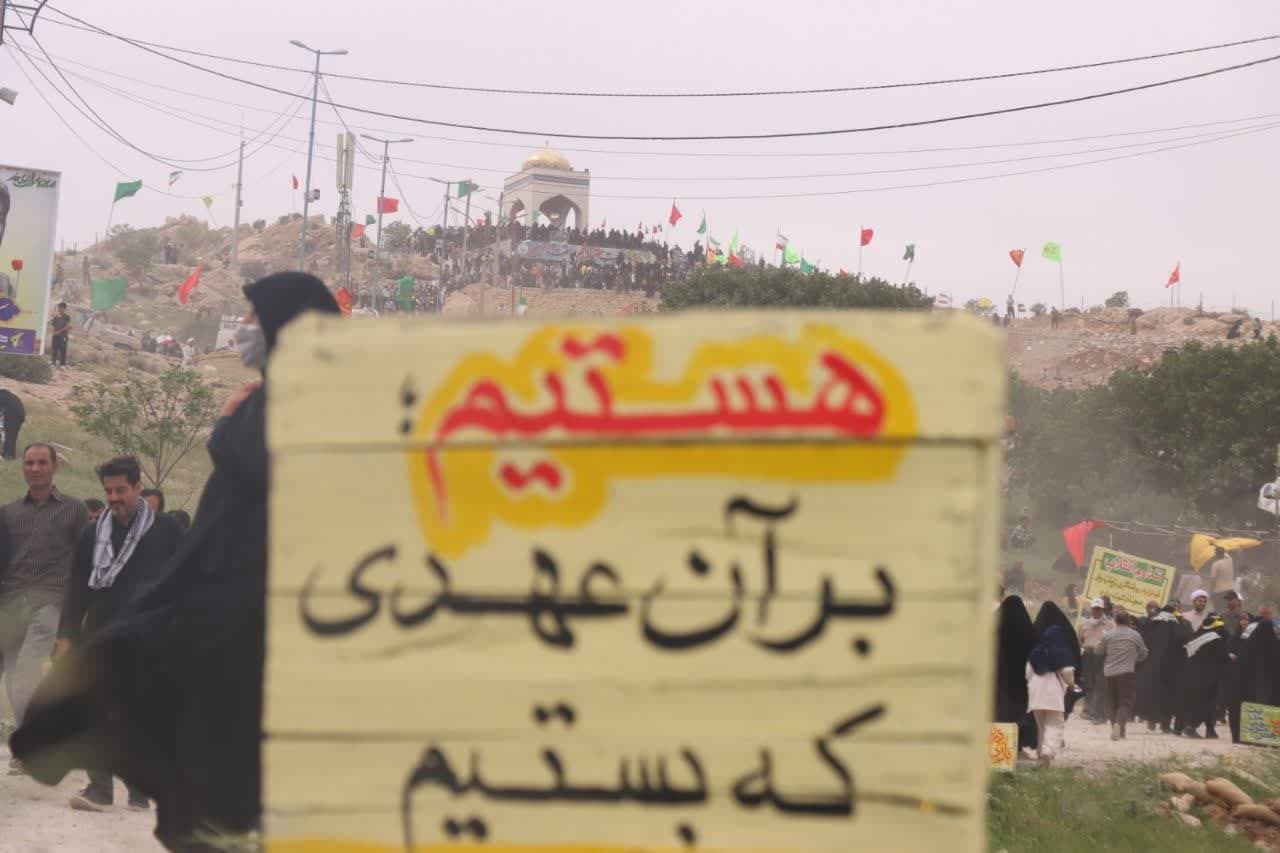 هستیم
بر آن عهدی
که بستیم